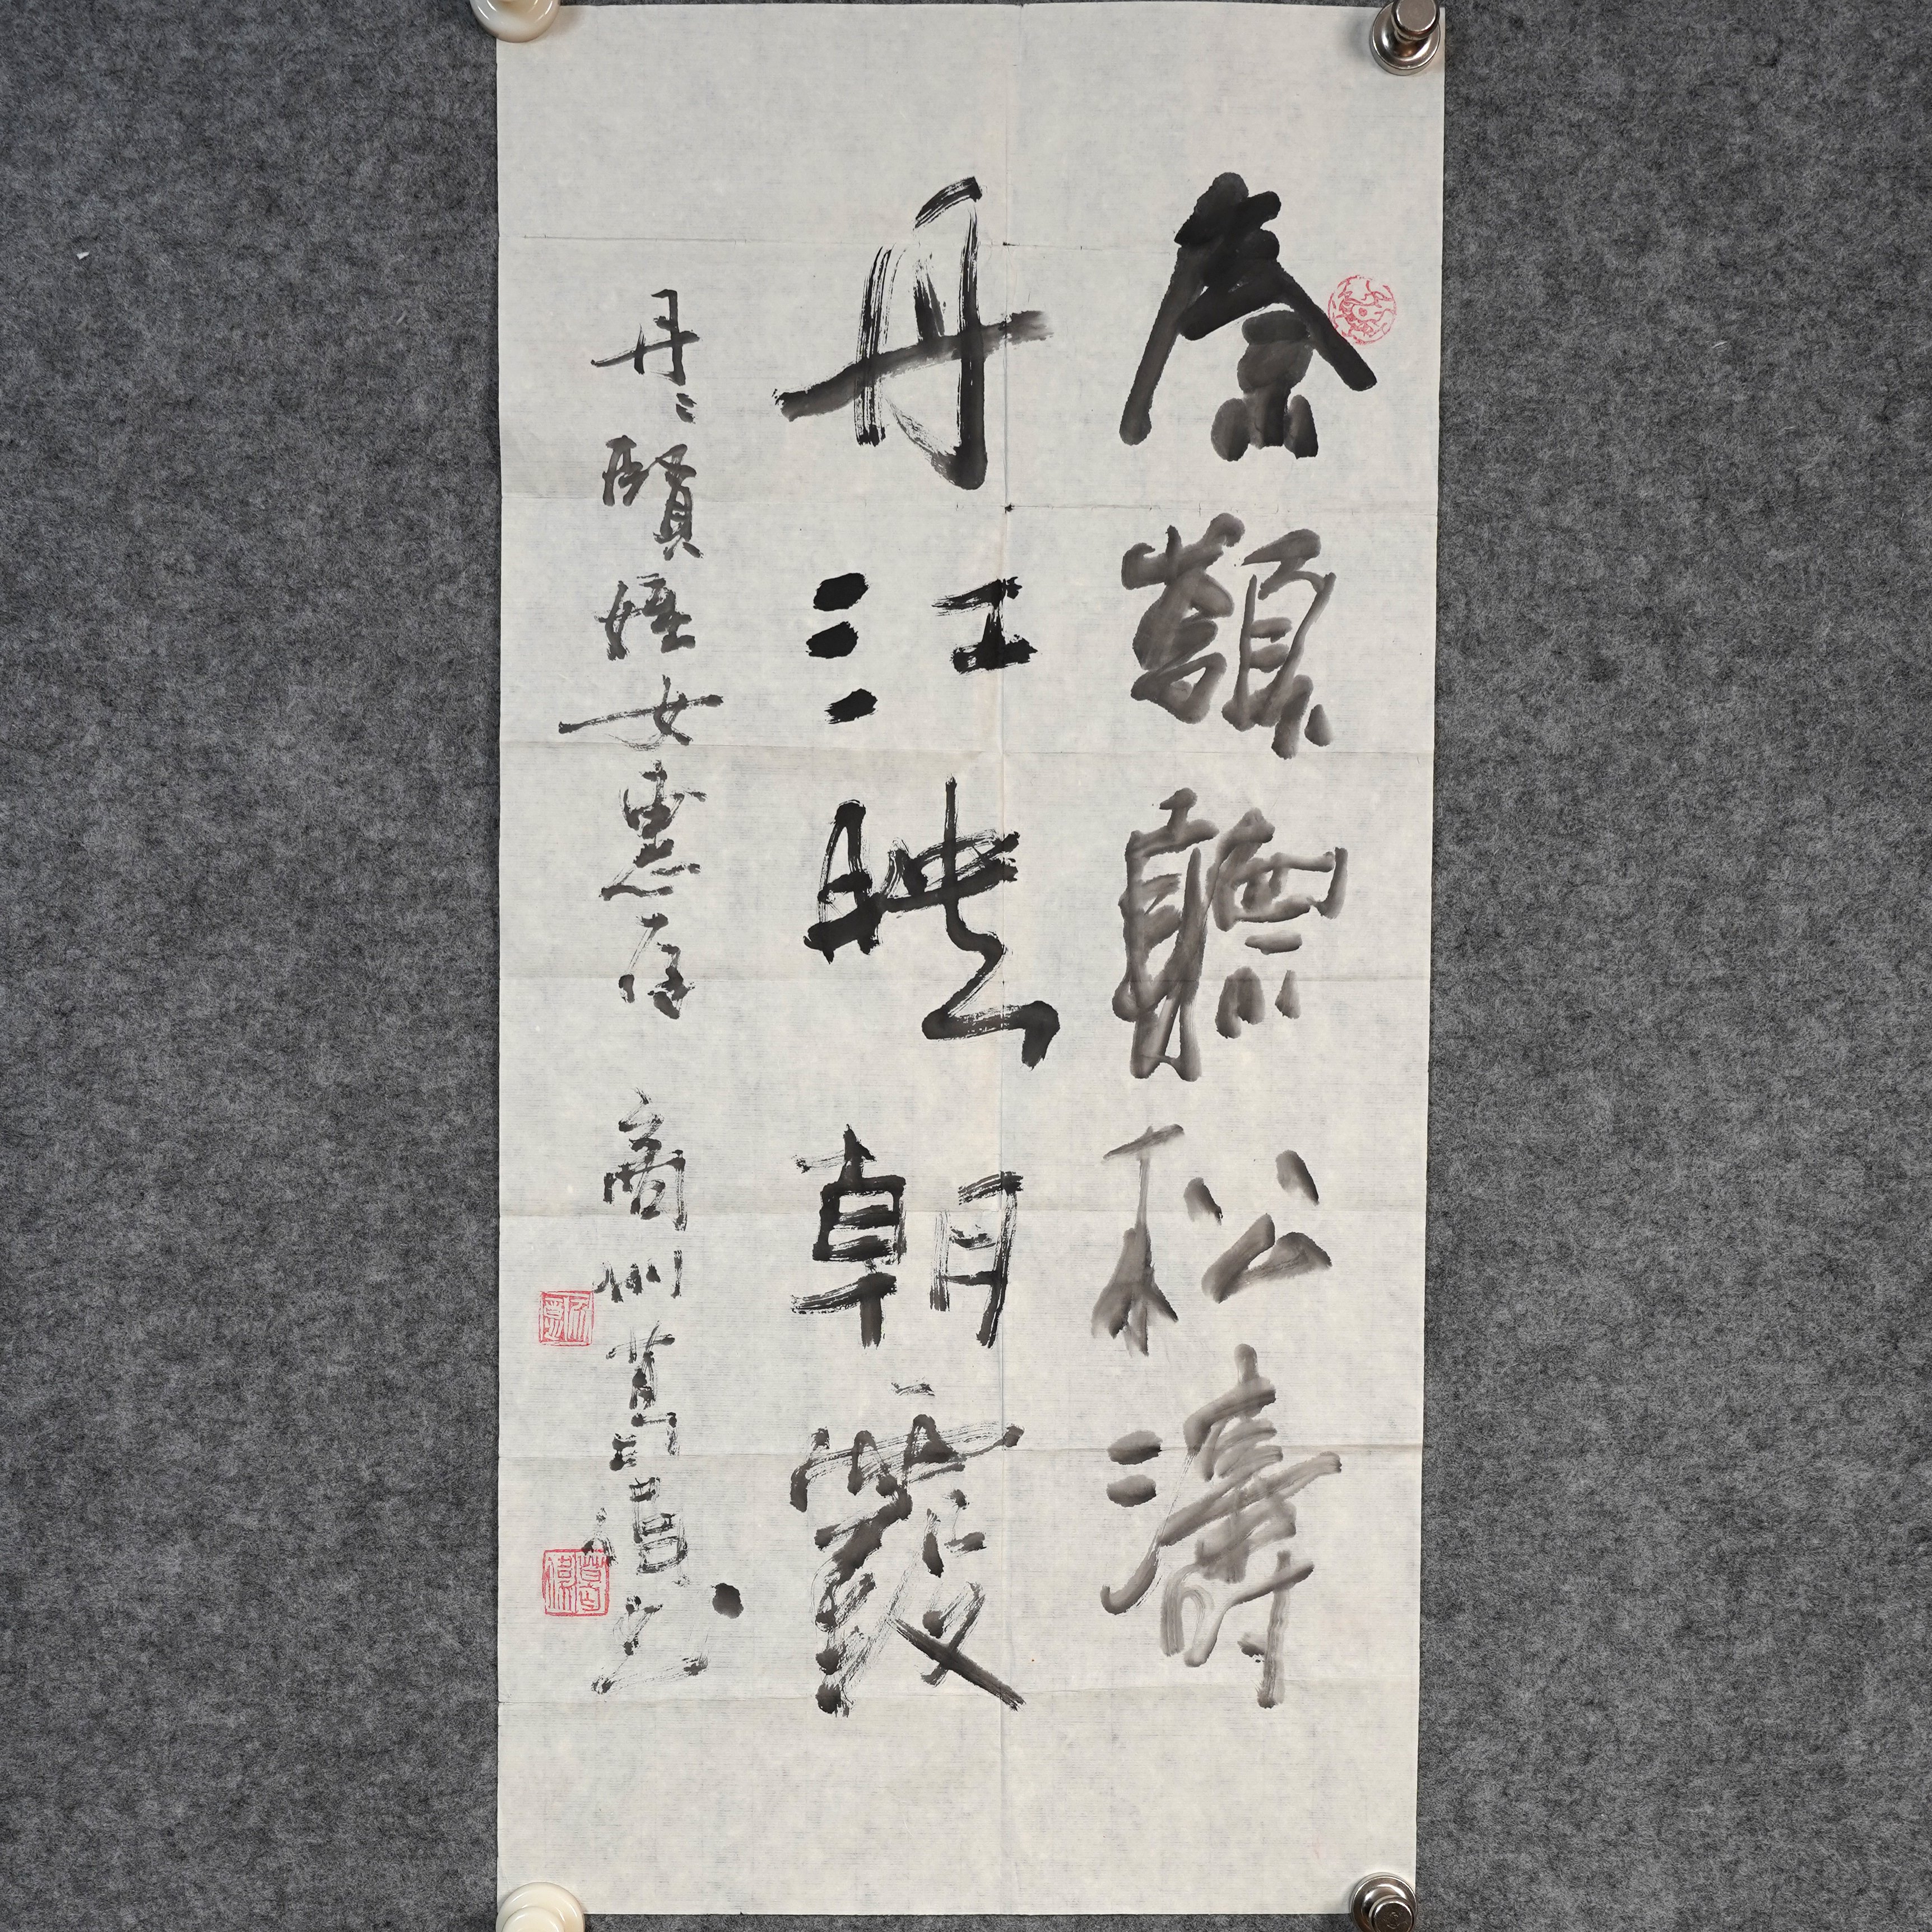 秦嶺聽松濤
丹江映朝霞
丹〻賢姪女惠存 商州